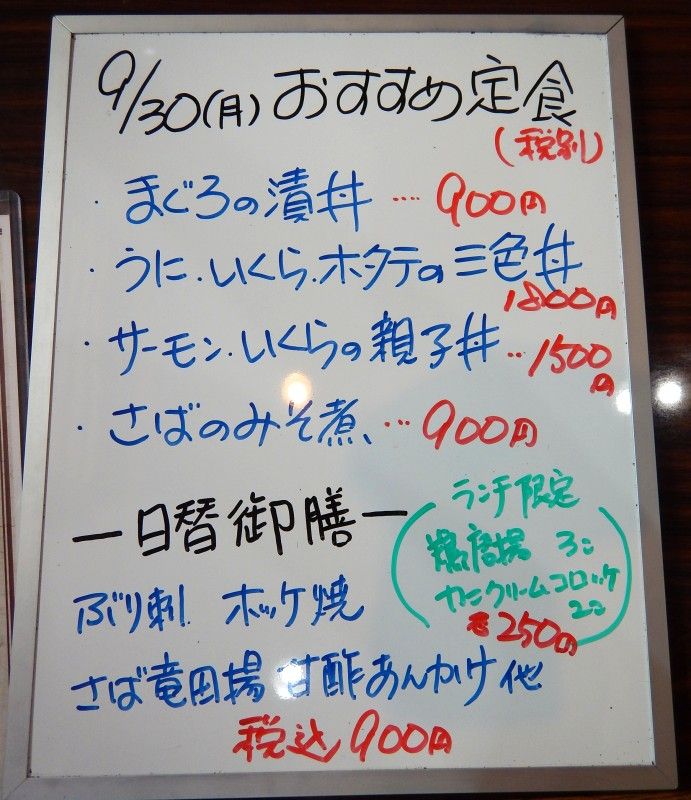 9/30(月)おすすめ定食
(税別)
・まぐろの漬丼‥‥900円
・うに.いくら.ホタテの三色丼
1800円
・サーモン.いくらの親子丼‥1500
円
・さばのみそ煮、…900円
ー日替御膳ー
ランチ限定
揚 3コ
カニクリームコロッケ
2コ
250円
ぶり刺 ホッケ焼
さば竜田揚 甘酢あんかけ 他
税込900円